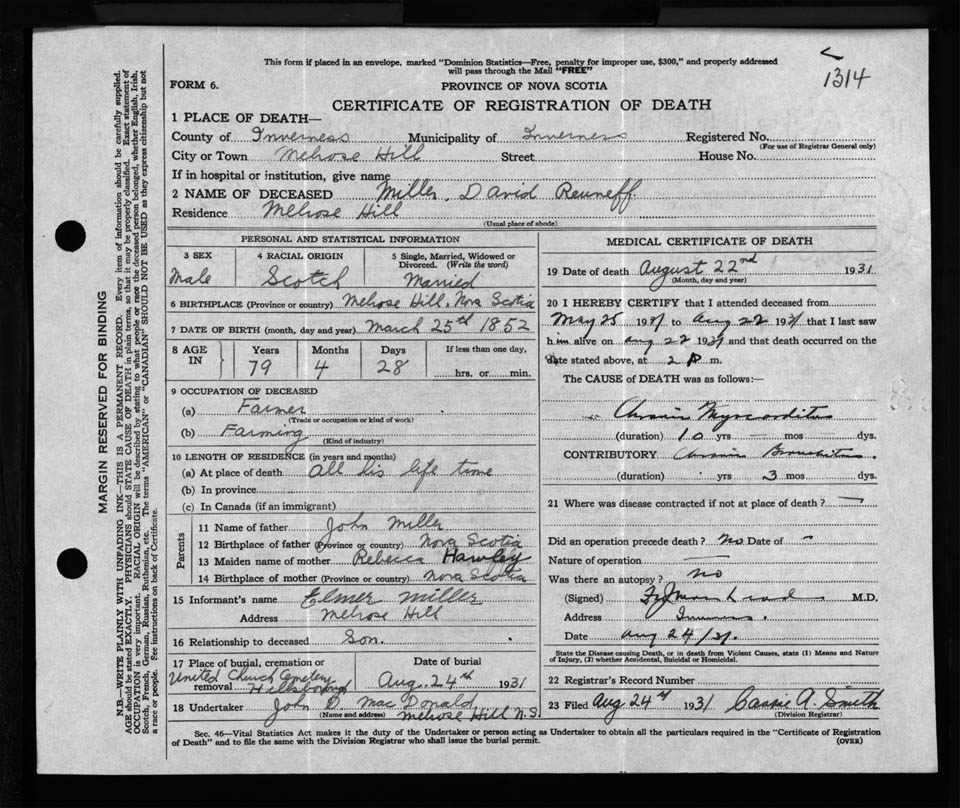 1314
This form if placed in an envelope, marked "Dominion Statistics—Free, penalty for improper use, $300," and properly addressed
will pass through the Mail "FREE"
FORM 6.
PROVINCE OF NOVA SCOTIA
CERTIFICATE OF REGISTRATION OF DEATH
1 PLACE OF DEATH—
County of Inverness Municipality of Inverness Registered No.
(For use of Registrar General only)
City or Town Melrose Hill Street House No.
If in hospital or institution, give name
2 NAME OF DECEASED Miller, David
Residence Melrose Hill
(Usual place of abode)
PERSONAL AND STATISTICAL INFORMATION
3 SEX 4 RACIAL ORIGIN 5 Single, Married, Widowed or
Divorced. (Write the word)
Male Scotch Married
6 BIRTHPLACE (Province or country) Melrose Hill, Nova Scotia
7 DATE OF BIRTH (month, day and year) March 25th 1852
8 AGE IN Years Months Days If less than one day,
79 4 28 hrs. or min.
9 OCCUPATION OF DECEASED
(a) Farmer
(Trade or occupation or kind of work)
(b) Farming
(Kind of industry)
10 LENGTH OF RESIDENCE (in years and months)
(a) At place of death all his life time
(b) In province
(c) In Canada (if an immigrant)
Parents
11 Name of father John Miller
12 Birthplace of father (Province or country) Nova Scotia
13 Maiden name of mother Rebecca Hawley
14 Birthplace of mother (Province or country) Nova Scotia
15 Informant's name Elmer Miller
Address Melrose Hill
16 Relationship to deceased Son.
17 Place of burial, cremation or Date of burial
United Church Cemetery
removal Hillsborough Aug. 24th 1931
18 Undertaker John D. MacDonald
(Name and address) Melrose Hill N.S.
MEDICAL CERTIFICATE OF DEATH
19 Date of death August 22nd 1931
(Month, day and year)
20 I HEREBY CERTIFY that I attended deceased from
May 25 1931 to Aug 22 1931 that I last saw
him alive on Aug 22 1931 and that death occurred on the
date stated above, at 2 P m.
The CAUSE of DEATH was as follows:—
Chronic Myocarditis
(duration) 10 yrs — mos dys.
CONTRIBUTORY Chronic Bronchitis
(duration) yrs 3 mos dys.
21 Where was disease contracted if not at place of death? —
Did an operation precede death? No Date of -
Nature of operation —
Was there an autopsy? no
(Signed) M.D.
Address Inverness.
Date Aug 24/31.
State the Disease causing Death, or in death from Violent Causes, state (1) Means and Nature
of Injury, (2) whether Accidental, Suicidal or Homicidal.
22 Registrar's Record Number
23 Filed Aug 24th 1931 Cassie A. Smith
(Division Registrar)
Sec. 46—Vital Statistics Act makes it the duty of the Undertaker or person acting as Undertaker to obtain all the particulars required in the "Certificate of Registration
of Death" and to file the same with the Division Registrar who shall issue the burial permit. (OVER)
MARGIN RESERVED FOR BINDING
N.B.—WRITE PLAINLY WITH UNFADING INK—THIS IS A PERMANENT RECORD. Every item of information should be carefully supplied.
AGE should be stated EXACTLY. PHYSICIANS should STATE CAUSE OF DEATH in plain terms, so that it may be properly classified. Exact statement of
OCCUPATION is very important. RACIAL ORIGIN will be described by stating to what people or race the deceased person belonged, whether English, Irish,
Scotch, French, German, Russian, Ruthenian, etc. The terms "AMERICAN" or "CANADIAN" SHOULD NOT BE USED as they express citizenship but not
a race or people. See instructions on back of Certificate.